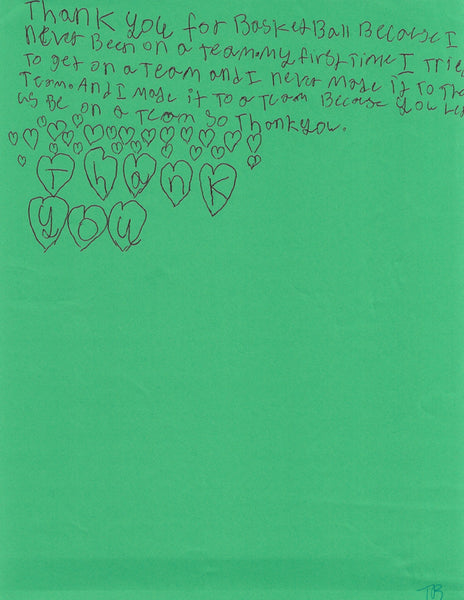 Thank you for BasketBall Because I
never Been on a team. My first time I trie
to get on a team and I never made it to the
Team. And I made it to a team Because you let
us Be on a team so Thank you.
Thank
you
TB